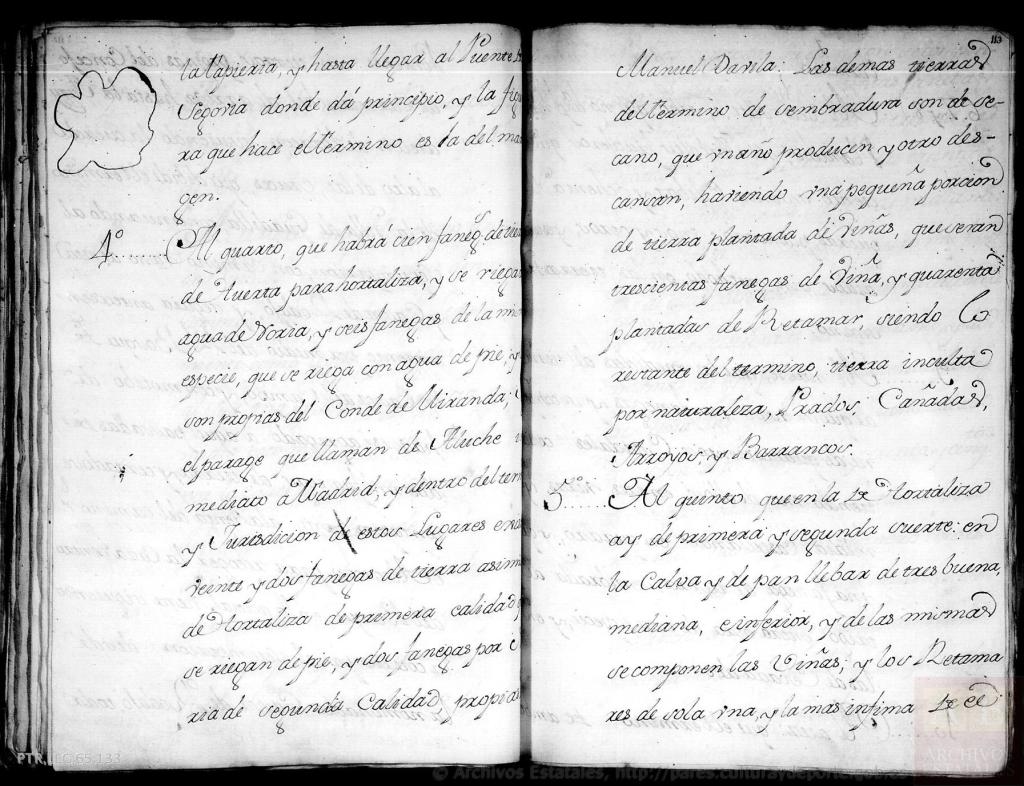 la tapieria, y hasta llegar al Puente
Segovia donde dá principio, y la figu
ra que hace el termino es la del mar
gen.
4º Al quarto, que habrá cien faneg.s de tier
de huerta para hortaliza, y se riegan
agua de Noria, y seis fanegas de la mis
especie, que se riega con agua de pie, y
son proprias del Conde de Miranda,
el parage que llaman de Aluche
mediato a Madrid, y dentro del ter
y Jurisdicion de estos Lugares
veinte y dos fanegas de tierra asim
de hortaliza de primera calidad,
se riegan de pie, y dos fanegas por
ria de segunda calidad, propias
113
Manuel Davila: Las demas tierras
del termino de sembradura son de se-
cano, que vn año producen y otro des-
cansan, haviendo vna pequeña porcion
de tierra plantada de Viñas, que seran
trescientas fanegas de Viña, y quarenta
plantadas de Retamar, siendo lo
restante del termino, tierra inculta
por naturaleza, Prados, Cañadas,
Arroyos, y Barrancos.
5º Al quinto que en la de hortaliza
ay de primera y segunda suerte: en
la Calva y de pan llebar de tres buena,
mediana, e inferior, y de las mismas
se componen las Viñas; y los Retama
res de sola vna, y la mas infima de el
PTR, LEG,65,133
© Archivos Estatales, http://pares.culturaydeporte.gob.es
ARCHIVOS